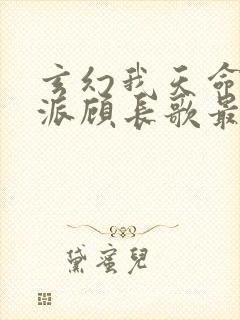 玄幻我天命
派顾长歌最
黛蜜兒